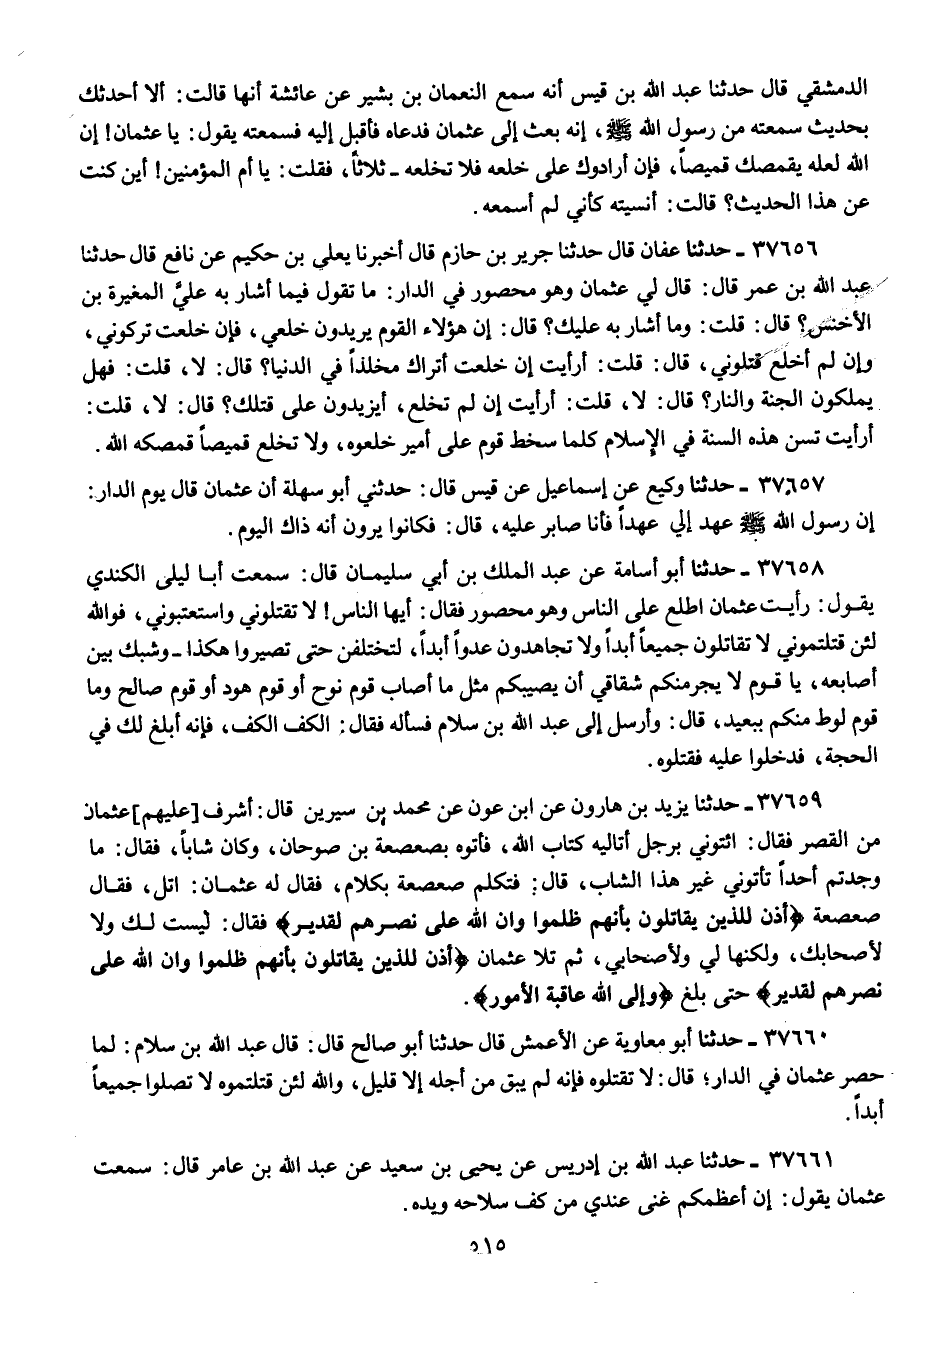 الدمشقي قال حدثنا عبد الله بن قيس أنه سمع النعمان بن بشير عن عائشة أنها قالت: ألا أحدثك
بحديث سمعته من رسول الله ﷺ، إنه بعث إلى عثمان فدعاه فأقبل إليه فسمعته يقول: يا عثمان! إن
الله لعله يقمصك قميصاً، فإن أرادوك على خلعه فلا تخلعه ـ ثلاثاً، فقلت: يا أم المؤمنين! أين كنت
عن هذا الحديث؟ قالت: أنسيته كأني لم أسمعه.
٣٧٦٥٦ ـ حدثنا عفان قال حدثنا جرير بن حازم قال أخبرنا يعلي بن حكيم عن نافع قال حدثنا
عبد الله بن عمر قال: قال لي عثمان وهو محصور في الدار: ما تقول فيما أشار به عليَّ المغيرة بن
الأخنس؟ قال: قلت: وما أشار به عليك؟ قال: إن هؤلاء القوم يريدون خلعي، فإن خلعت تركوني،
وإن لم أخلع قتلوني، قال: قلت: أرأيت إن خلعت أتراك مخلداً في الدنيا؟ قال: لا، قلت: فهل
يملكون الجنة والنار؟ قال: لا، قلت: أرأيت إن لم تخلع، أيزيدون على قتلك؟ قال: لا، قلت:
أرأيت تسن هذه السنة في الإسلام كلما سخط قوم على أمير خلعوه، ولا تخلع قميصاً قمصكه الله.
٣٧٦٥٧ ـ حدثنا وكيع عن إسماعيل عن قيس قال: حدثني أبو سهلة أن عثمان قال يوم الدار:
إن رسول الله ﷺ عهد إلي عهداً فأنا صابر عليه، قال: فكانوا يرون أنه ذاك اليوم.
٣٧٦٥٨ ـ حدثنا أبو أسامة عن عبد الملك بن أبي سليمان قال: سمعت أبا ليلى الكندي
يقول: رأيت عثمان اطلع على الناس وهو محصور فقال: أيها الناس! لا تقتلوني واستعتبوني، فوالله
لئن قتلتموني لا تقاتلون جميعاً أبداً ولا تجاهدون عدواً أبداً، لتختلفن حتى تصيروا هكذا ـ وشبك بين
أصابعه، يا قوم لا يجرمنكم شقاقي أن يصيبكم مثل ما أصاب قوم نوح أو قوم هود أو قوم صالح وما
قوم لوط منكم ببعيد، قال: وأرسل إلى عبد الله بن سلام فسأله فقال: الكف الكف، فإنه أبلغ لك في
الحجة، فدخلوا عليه فقتلوه.
٣٧٦٥٩ ـ حدثنا يزيد بن هارون عن ابن عون عن محمد بن سيرين قال: أشرف [عليهم] عثمان
من القصر فقال: ائتوني برجل أتاليه كتاب الله، فأتوه بصعصعة بن صوحان، وكان شاباً، فقال: ما
وجدتم أحداً تأتوني غير هذا الشاب، قال: فتكلم صعصعة بكلام، فقال له عثمان: اتل، فقال
صعصعة ﴿أذن للذين يقاتلون بأنهم ظلموا وان الله على نصرهم لقدير﴾ فقال: ليست لك ولا
لأصحابك، ولكنها لي ولأصحابي، ثم تلا عثمان ﴿أذن للذين يقاتلون بأنهم ظلموا وان الله على
نصرهم لقدير﴾ حتى بلغ ﴿وإلى الله عاقبة الأمور﴾.
٣٧٦٦٠ ـ حدثنا أبو معاوية عن الأعمش قال حدثنا أبو صالح قال: قال عبد الله بن سلام: لما
حصر عثمان في الدار؛ قال: لا تقتلوه فإنه لم يبق من أجله إلا قليل، والله لئن قتلتموه لا تصلوا جميعاً
أبداً.
٣٧٦٦١ ـ حدثنا عبد الله بن إدريس عن يحيى بن سعيد عن عبد الله بن عامر قال: سمعت
عثمان يقول: إن أعظمكم غنى عندي من كف سلاحه ويده.
٥١٥